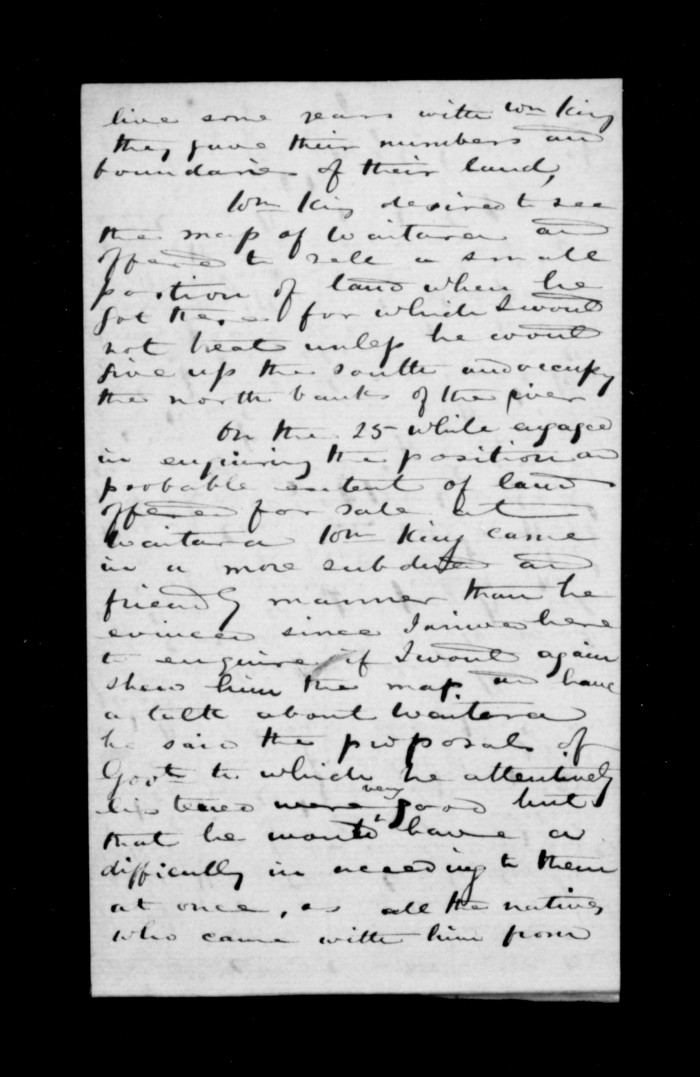 live some years with Wm King
they gave their numbers and
boundaries of their land,
Wm King desired to see
the map of Waitara and
offered to sell a small
portion of land when he
got there for which I would
not treat unless he would
give up the south and occupy
the north banks of the river
On the 25 while engaged
in enquiring the position and
probable extent of land
offered for sale at
Waitara Wm King came
in a more subdued and
friendly manner than he
evinced since I arrived here
to enquire if I would again
shew him the map. and have
a talk about Waitara
he said the proposals of
Govt to which he attentively
listened were very good but
that he would have a
difficulty in acceeding to them
at once, as all the natives
who came with him from